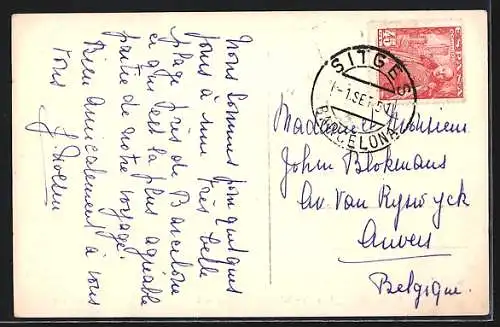 Nous sommes pour quelques
jours à une très belle
plage près de Barcelone
ce qui est la plus agréable
partie de notre voyage.
Bien amicalement à vous
tous
SITGES
1 SET
BARCELONA
ESPAÑA
45
Madame Monsieur
John Blokmans
Av. Van Ryswyck
Anvers
Belgique.